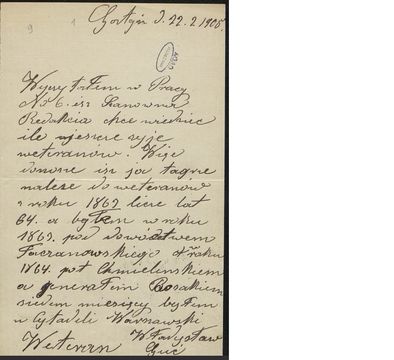 d. 22.2 1905.
Wyczytałem w Pracy
No 6. isz Szanowna
Redakcia chce wiedziec
ile jeszcze zyje
weteranów. Więc
donosze isz ja tagze
należe do weteranów
z roku 1863 licze lat
64. a byłem w roku
1863. pod dowództwem
Taczanowskiego a roku
1864. pot Chmielinskiem
a generałem Bosakiem
siedem miesięcy byłem
w Cytadeli Warszawski
Weteran Władysław